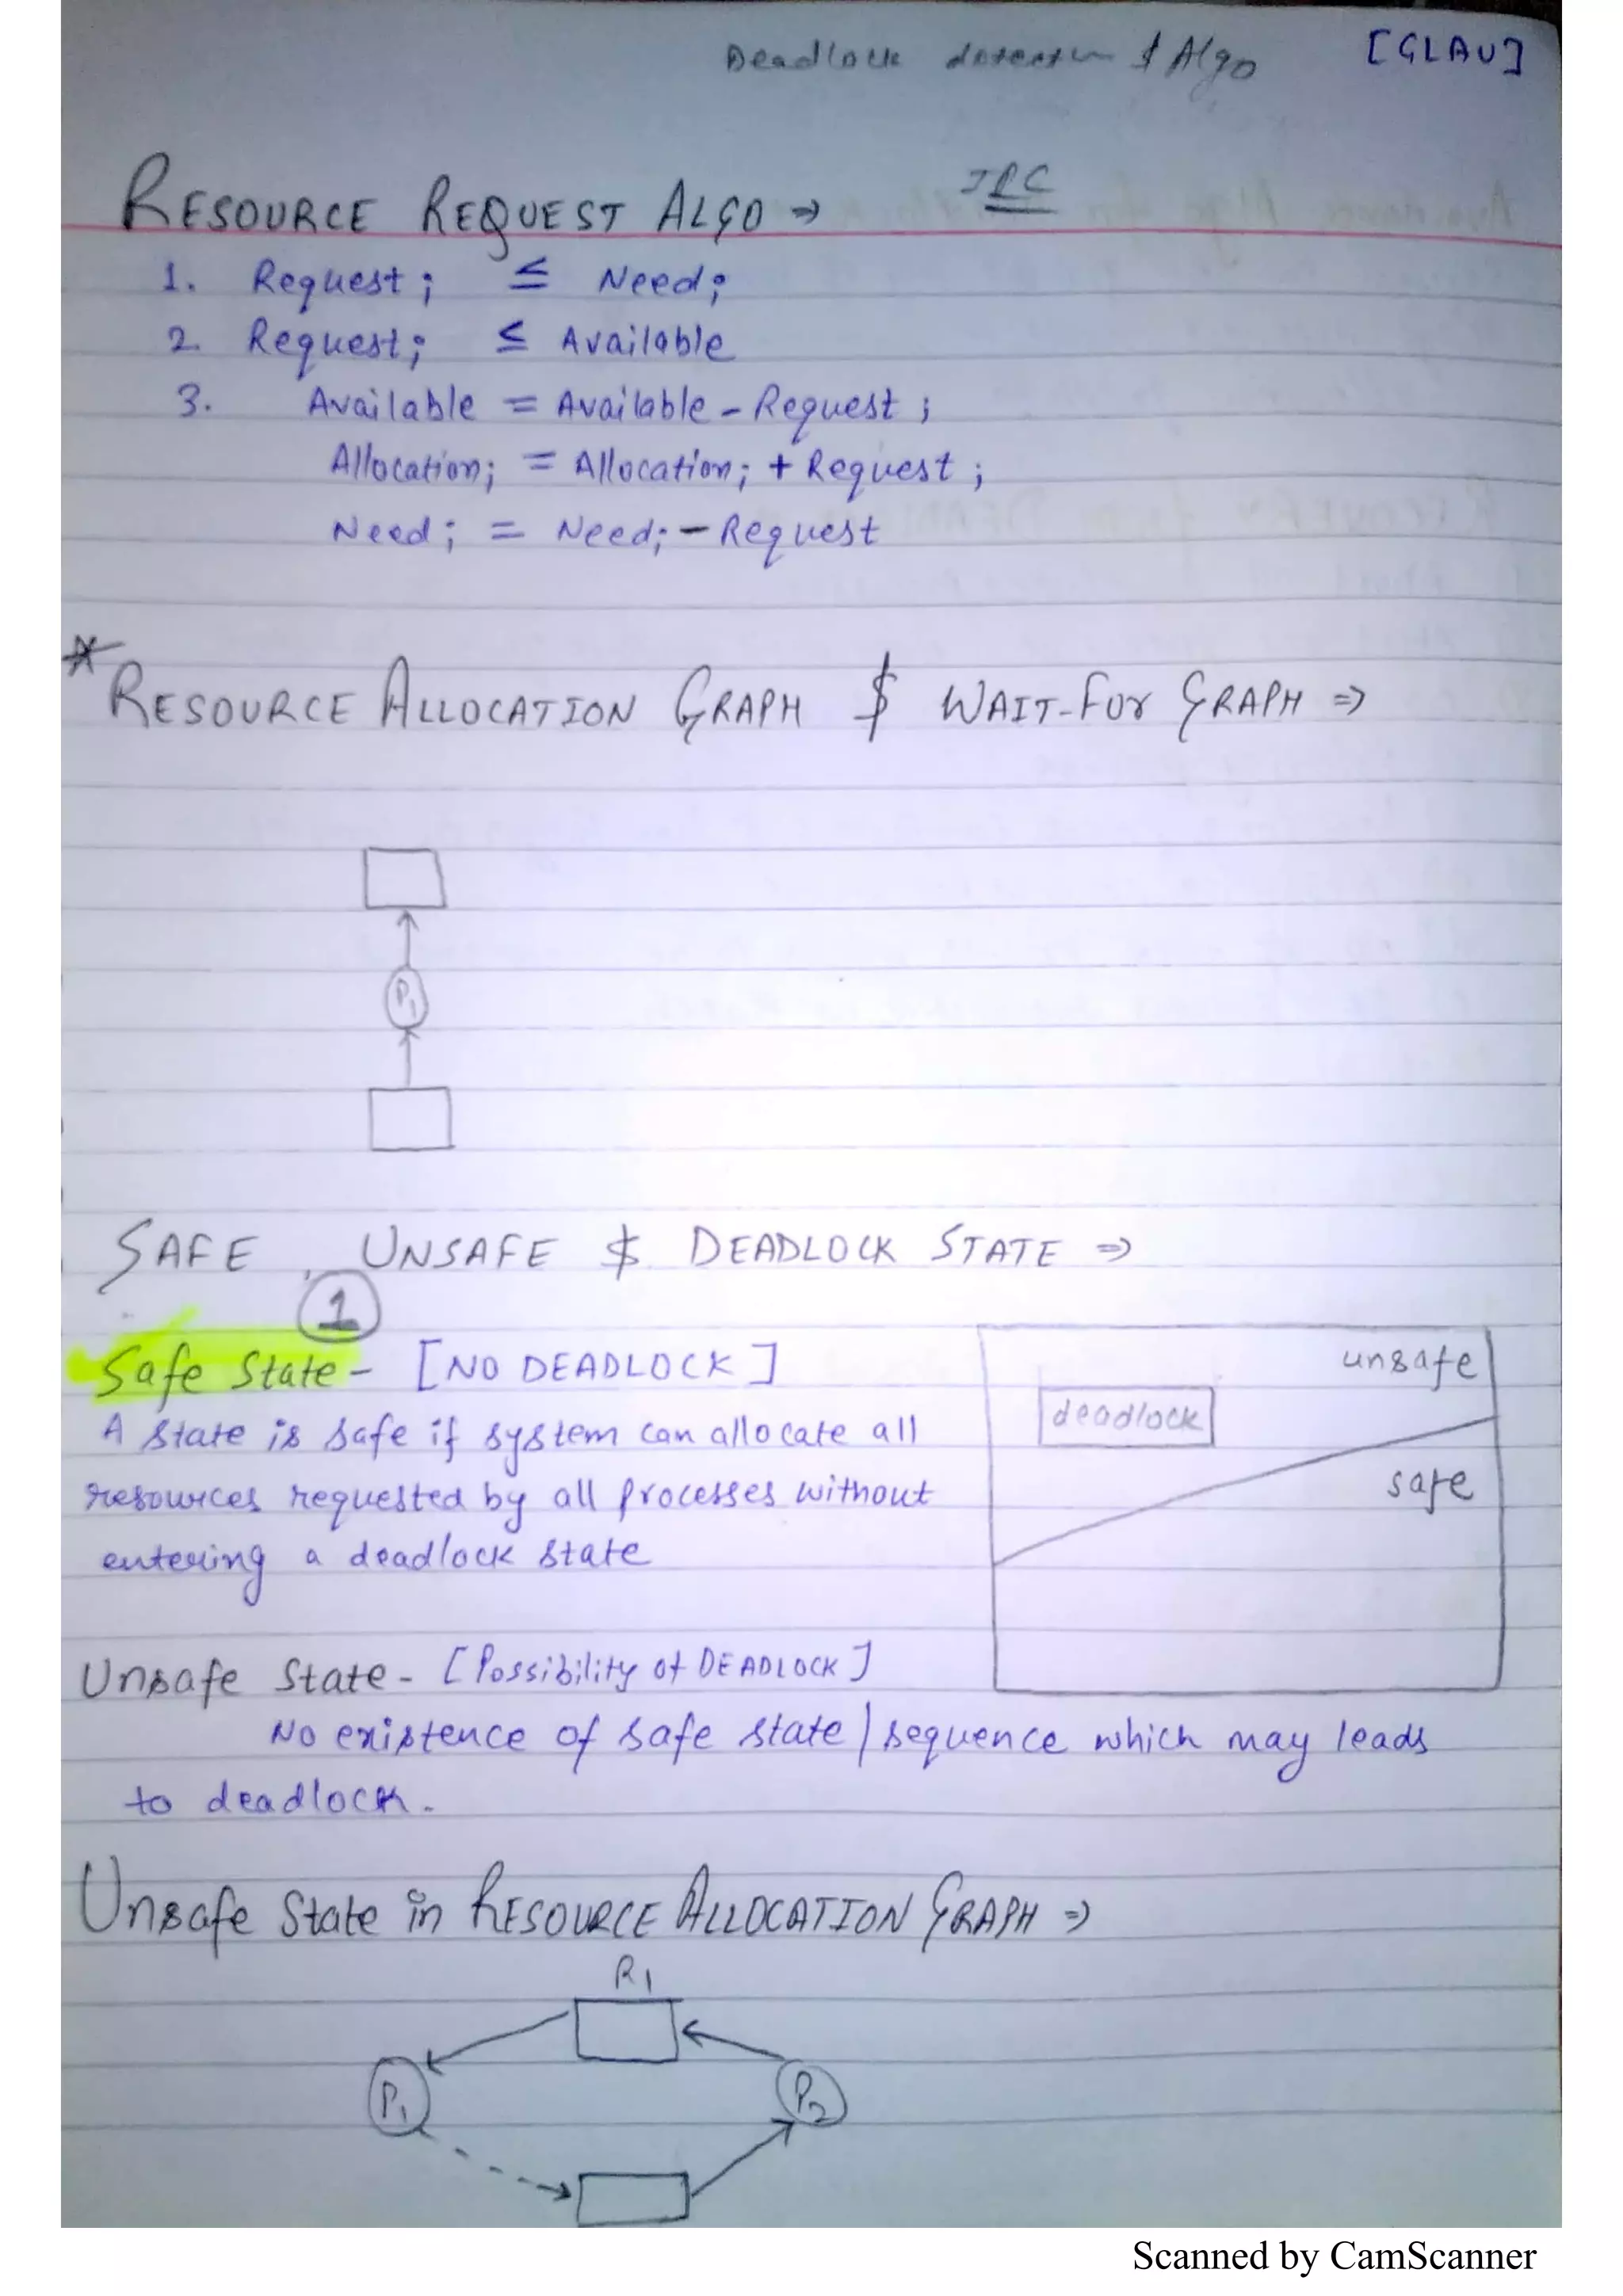 Deadlock detection & Algo [GLAU]
RESOURCE REQUEST ALGO ⇒
1. Requesti ≤ Needi
2. Requesti ≤ Available
3. Available = Available - Requesti
Allocationi = Allocationi + Requesti
Needi = Needi - Request
*RESOURCE ALLOCATION GRAPH & WAIT-For GRAPH ⇒
P1
SAFE, UNSAFE & DEADLOCK STATE ⇒
1
Safe State - [NO DEADLOCK]
A state is safe if system can allocate all
resources requested by all processes without
entering a deadlock state
unsafe
deadlock
safe
Unsafe State - [Possibility of DEADLOCK]
No existence of safe state / sequence which may leads
to deadlock.
Unsafe State in RESOURCE ALLOCATION GRAPH ⇒
R1
P1 P2
Scanned by CamScanner